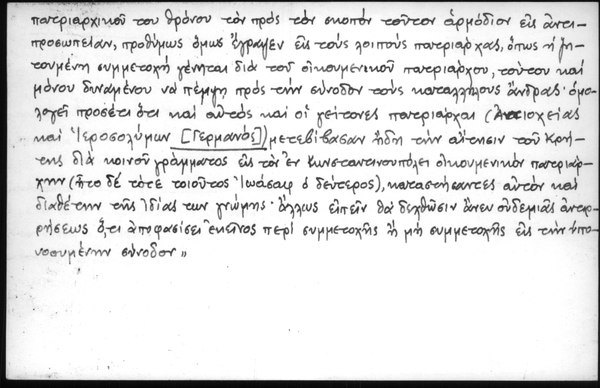 πατριαρχικοῦ του θρόνου τὸν πρὸς τὸν σκοπὸν τοῦτον ἁρμόδιον εἰς ἀντι-
προσωπείαν, προθύμως ὅμως ἔγραψεν εἰς τοὺς λοιποὺς πατριάρχας, ὅπως ἡ ζη-
τουμένη συμμετοχὴ γένηται διὰ τοῦ οἰκουμενικοῦ πατριάρχου, τούτου καὶ
μόνου δυναμένου νὰ πέμψῃ πρὸς τὴν σύνοδον τοὺς καταλλήλους ἄνδρας· ὁμο-
λογεῖ προσέτι ὅτι καὶ αὐτὸς καὶ οἱ γείτονες πατριάρχαι (Ἀντιοχείας
καὶ Ἱεροσολύμων [Γερμανὸς]) μετεβίβασαν ἤδη τὴν αἴτησιν τοῦ Κρή-
της διὰ κοινοῦ γράμματος εἰς τὸν ἐν Κωνσταντινουπόλει οἰκουμενικὸν πατριάρ-
χην (ἦτο δὲ τότε τοιοῦτος Ἰωάσαφ ὁ δεύτερος), καταστήσαντες αὐτὸν καὶ
διαθέτην τῆς ἰδίας των γνώμης· ἄλλως εἰπεῖν θὰ δεχθῶσιν ἄνευ οὐδεμιᾶς ἀντιρ-
ρήσεως ὅ,τι ἀποφασίσει ἐκεῖνος περὶ συμμετοχῆς ἢ μὴ συμμετοχῆς εἰς τὴν ὑπο-
νοουμένην σύνοδον »